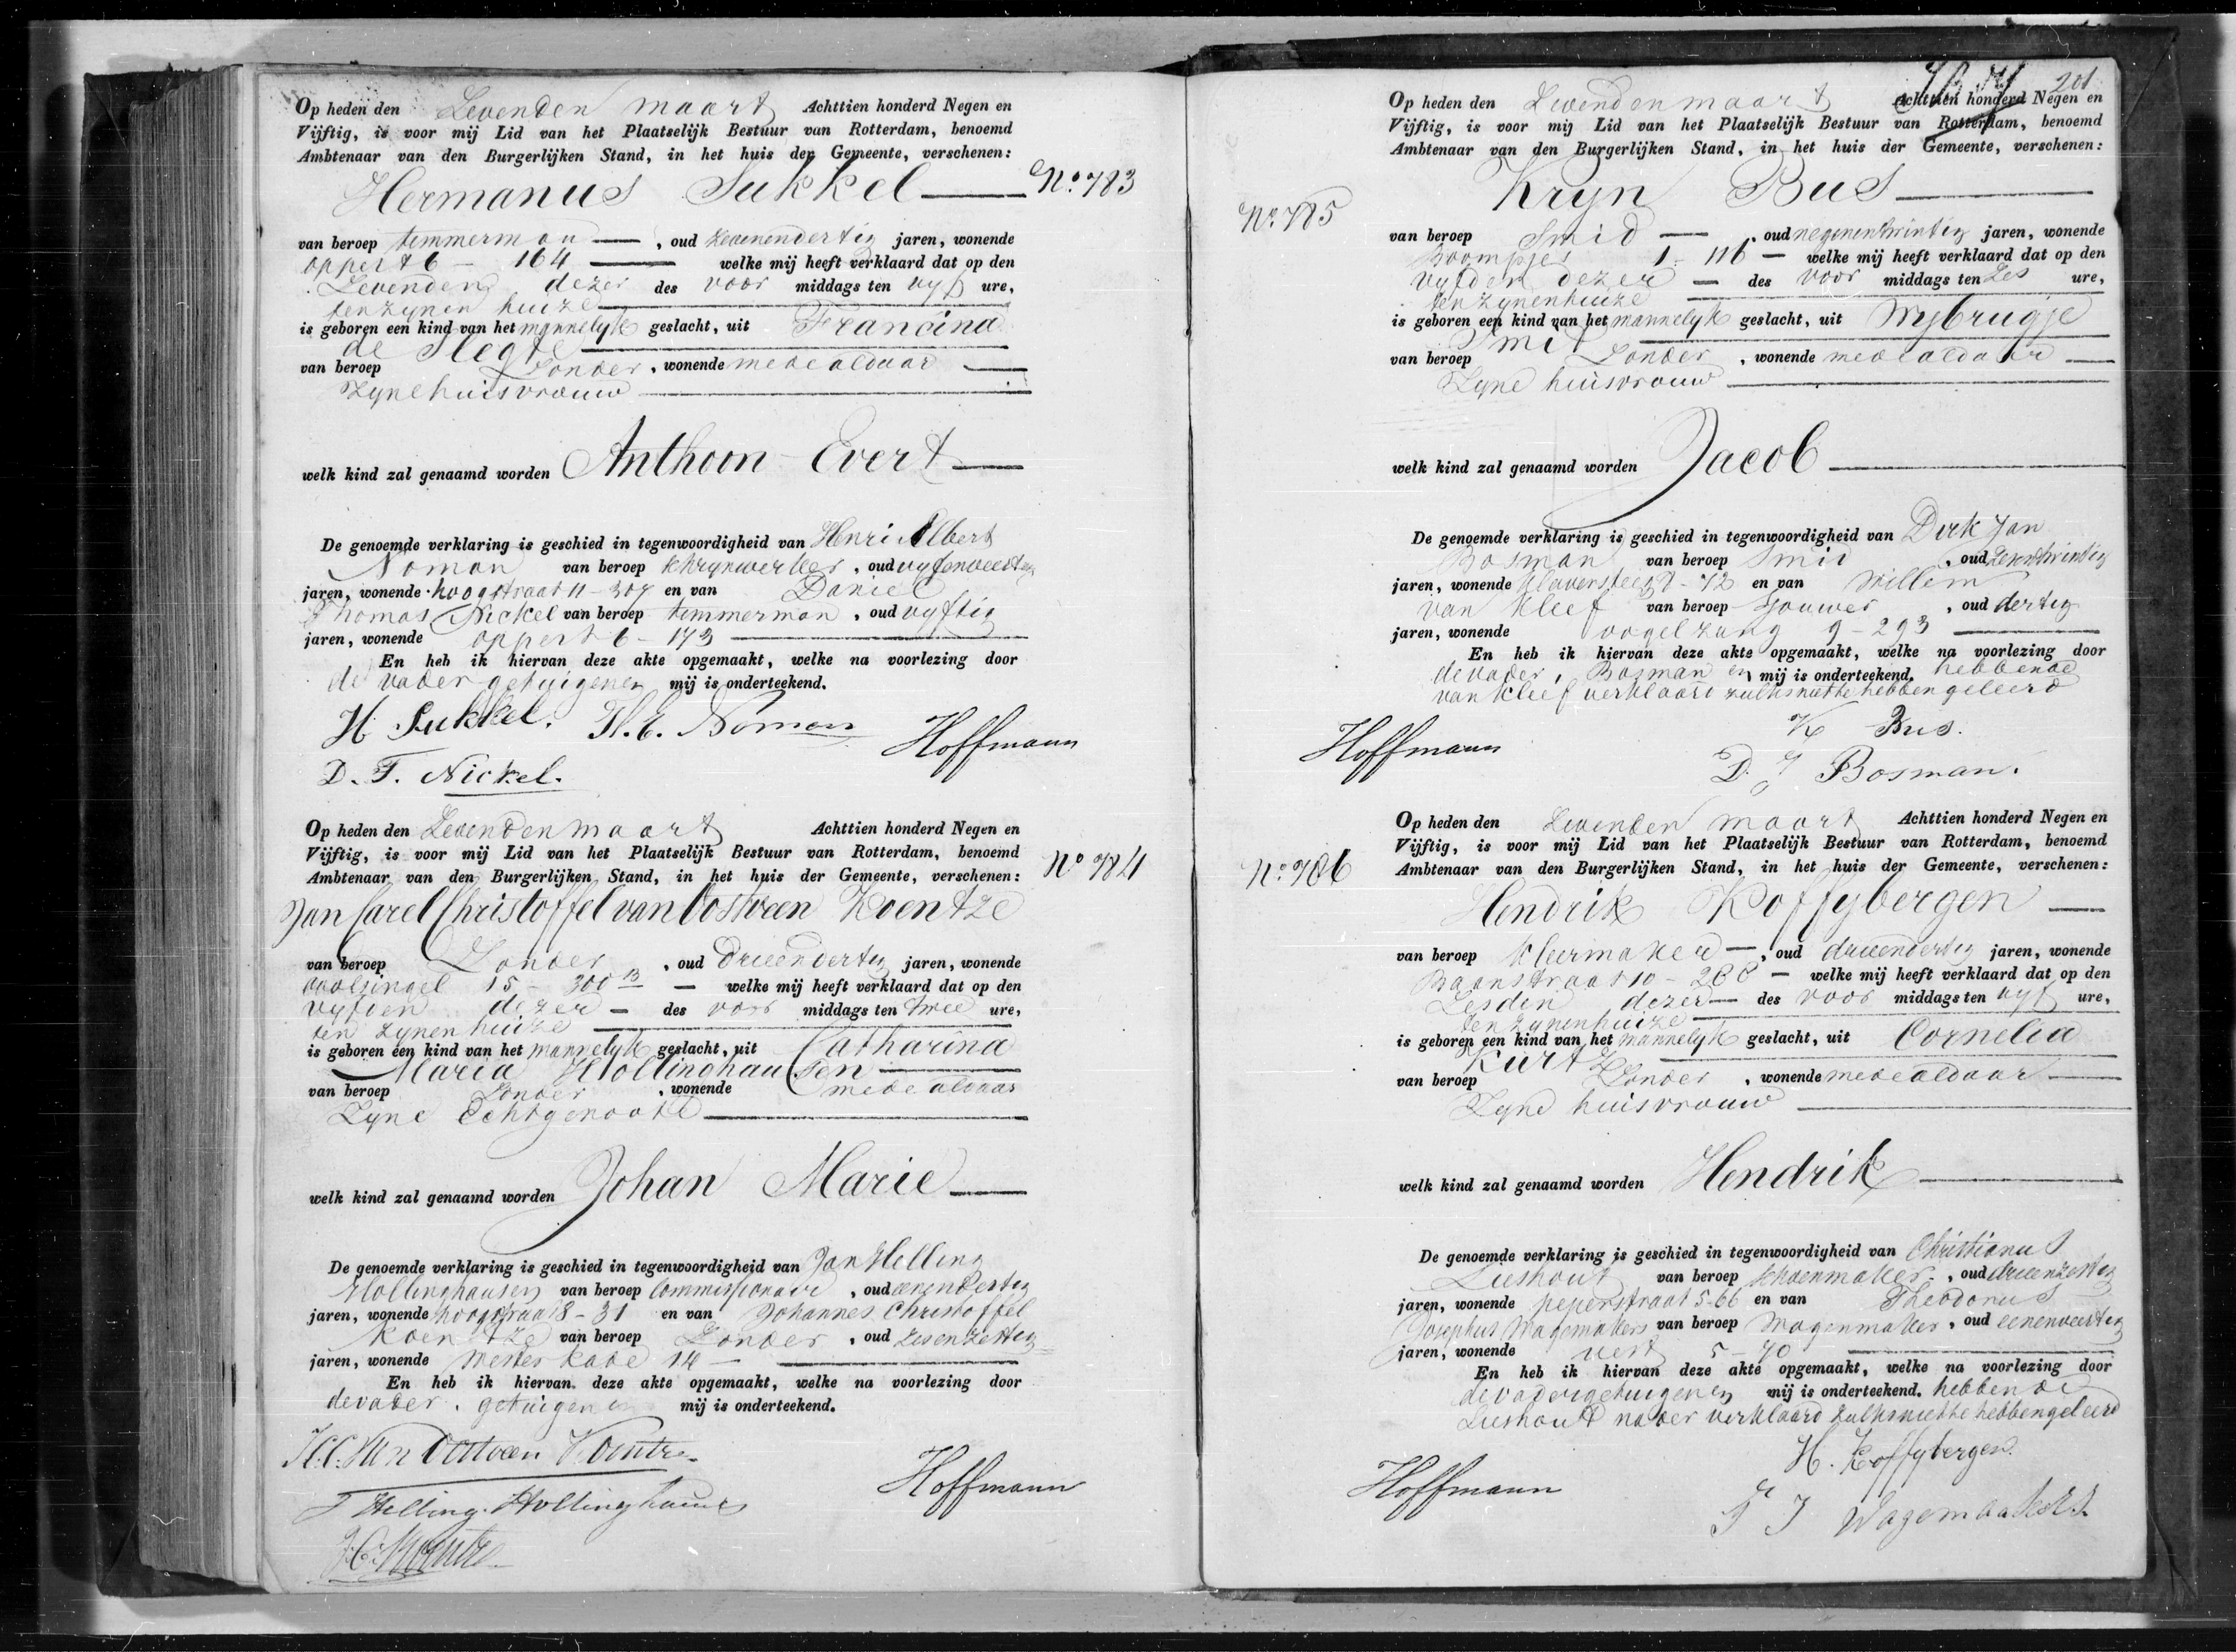 Op heden den Zevenden maart Achttien honderd Negen en
Vijftig, is voor mij Lid van het Plaatselijk Bestuur van Rotterdam, benoemd
Ambtenaar van den Burgerlijken Stand, in het huis der Gemeente, verschenen:
Hermanus Sukkel
No. 783
van beroep timmerman, oud zevenendertig jaren, wonende
oppert 6 - 164 welke mij heeft verklaard dat op den
Zevenden dezer des voor middags ten vyf ure,
ten zynen huize
is geboren een kind van het mannelyk geslacht, uit Francina
de Slegte
van beroep Zonder, wonende mede aldaar
Zyne huisvrouw
welk kind zal genaamd worden Anthoon Evert
De genoemde verklaring is geschied in tegenwoordigheid van Henri Elbert
Noman van beroep schrynwerker, oud vyfenveertig
jaren, wonende hoogstraat 11 - 307 en van Daniel
Thomas Nickel van beroep timmerman, oud vyftig
jaren, wonende oppert 6 - 173
En heb ik hiervan deze akte opgemaakt, welke na voorlezing door
de vader getuigen en mij is onderteekend.
H. Sukkel. H. E. Noman Hoffmann
D. T. Nickel.
Op heden den Zevenden maart Achttien honderd Negen en
Vijftig, is voor mij Lid van het Plaatselijk Bestuur van Rotterdam, benoemd
Ambtenaar van den Burgerlijken Stand, in het huis der Gemeente, verschenen:
No 784
Jan Carel Christoffel van Oostveen Koentze
van beroep Zonder, oud drieendertig jaren, wonende
15 - 300 welke mij heeft verklaard dat op den
vyfden dezer des voor middags ten twee ure,
ten zynen huize
is geboren een kind van het mannelyk geslacht, uit Catharina
Maria Hollinghausen
van beroep Zonder, wonende mede aldaar
Zyne Echtgenoote
welk kind zal genaamd worden Johan Marie
De genoemde verklaring is geschied in tegenwoordigheid van Jan Helling
Hollinghausen van beroep Commissionair, oud eenendertig
jaren, wonende hoogstraat 8 - 31 en van Johannes Christoffel
Koentze van beroep Zonder, oud zesenzestig
jaren, wonende Wester kade 14
En heb ik hiervan deze akte opgemaakt, welke na voorlezing door
de vader, getuigen en mij is onderteekend.
J. C. C. van Oostveen Koentze
Hoffmann
J Helling Hollinghausen
J. C. Koentze
201
Op heden den Zevenden maart Achttien honderd Negen en
Vijftig, is voor mij Lid van het Plaatselijk Bestuur van Rotterdam, benoemd
Ambtenaar van den Burgerlijken Stand, in het huis der Gemeente, verschenen:
Kryn Bus
No. 785
van beroep Smid, oud negenentwintig jaren, wonende
Boompjes 1 - 116 welke mij heeft verklaard dat op den
vyfden dezer des voor middags ten Zes ure,
ten zynen huize
is geboren een kind van het mannelyk geslacht, uit Wybrugje
Smit
van beroep Zonder, wonende mede aldaar
Zyne huisvrouw
welk kind zal genaamd worden Jacob
De genoemde verklaring is geschied in tegenwoordigheid van Dirk Jan
Bosman van beroep Smid, oud
jaren, wonende - 72 en van Willem
van Kleef van beroep Sjouwer, oud dertig
jaren, wonende vogelzang 9 - 293
En heb ik hiervan deze akte opgemaakt, welke na voorlezing door
de vader, Bosman en mij is onderteekend, hebbende
van Kleef verklaard zulks niet te hebben geleerd
K Bus.
Hoffmann
D. J Bosman.
Op heden den Zevenden maart Achttien honderd Negen en
Vijftig, is voor mij Lid van het Plaatselijk Bestuur van Rotterdam, benoemd
Ambtenaar van den Burgerlijken Stand, in het huis der Gemeente, verschenen:
No. 786
Hendrik Koffybergen
van beroep Kleermaker, oud drieendertig jaren, wonende
Baanstraat 10 - 268 welke mij heeft verklaard dat op den
Zesden dezer des voor middags ten vyf ure,
ten zynen huize
is geboren een kind van het mannelyk geslacht, uit Cornelia
Kurtz
van beroep Zonder, wonende mede aldaar
Zyne huisvrouw
welk kind zal genaamd worden Hendrik
De genoemde verklaring is geschied in tegenwoordigheid van Christianus
Lieshout van beroep schoenmaker, oud drieenzestig
jaren, wonende peperstraat 5-66 en van Theodorus
Josephus Wagemakers van beroep Wagenmaker, oud eenenveertig
jaren, wonende vest 5 - 70
En heb ik hiervan deze akte opgemaakt, welke na voorlezing door
de vader getuigen en mij is onderteekend, hebbende
Lieshout nader verklaard zulks niet te hebben geleerd
H. Koffybergen.
Hoffmann
T J Wagemaakers.